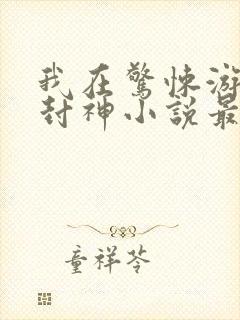 我在驚悚游
封神小說最
童祥苓